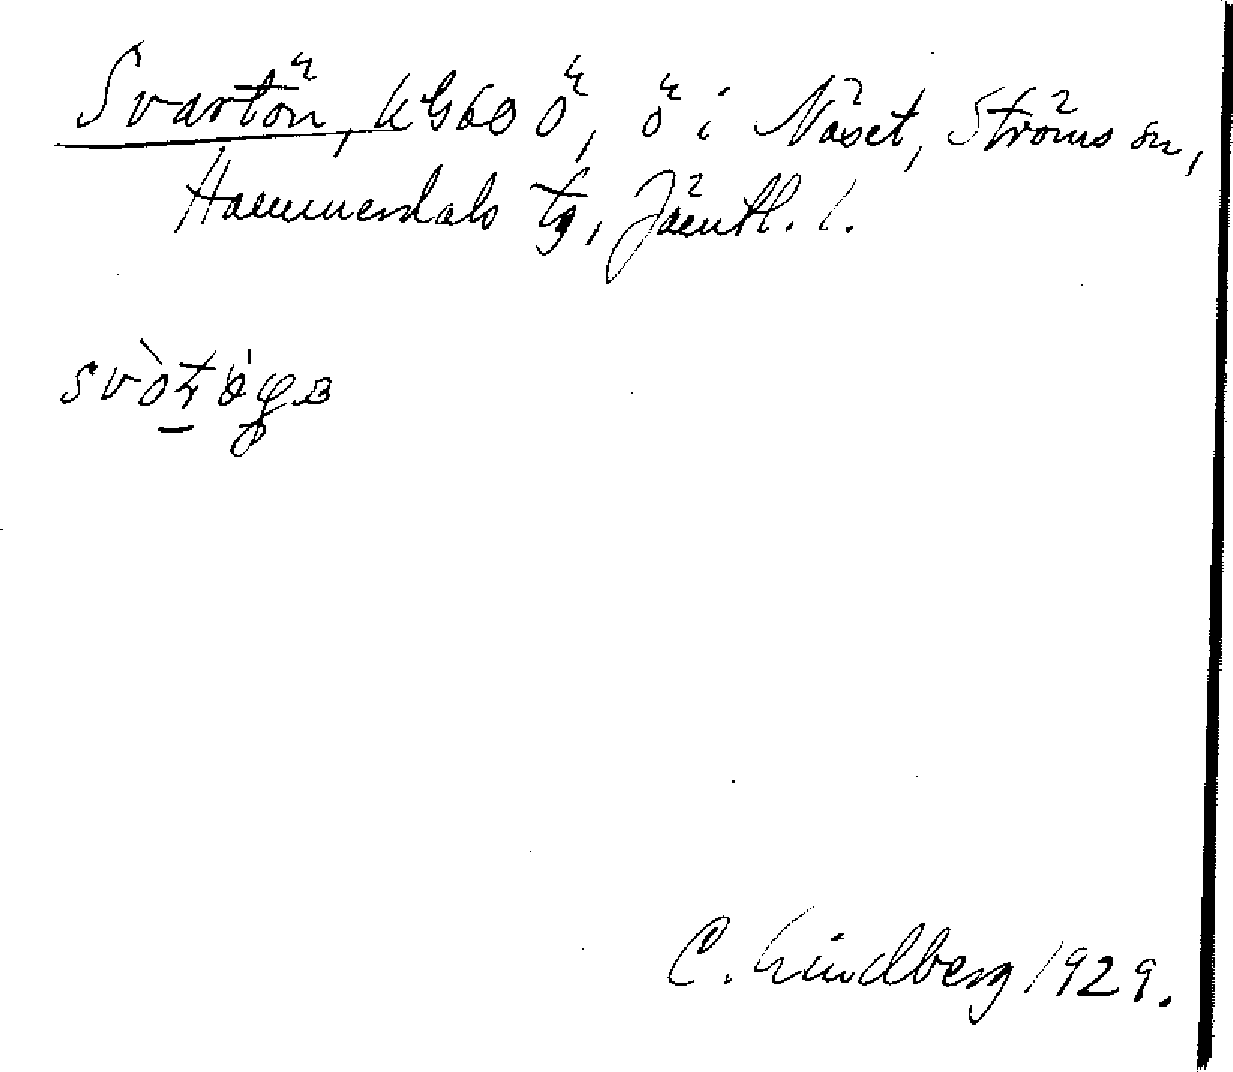 Svartön, KG60 Ö, ö i Näset, Ströms sn,
Hammerdals tg, Jämtl. l.
C. Lindberg 1929.